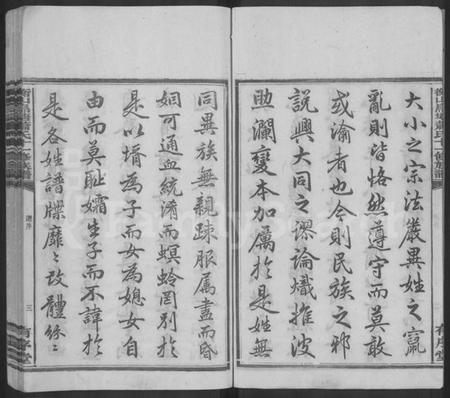 大小之宗法嚴異姓之竄
亂則皆恪然遵守而莫敢
或渝者也今則民族之邪
說興大同之謬論熾推波
助瀾變本加厲於是姓無
同異族無親疎服属盡而昏
姻可通血統淆而螟蛉罔别於
是以壻為子而女為媳女自
由而莫耻孀生子而不諱於
是各姓譜牒靡靡改體紛紛
譜序
三
有序堂